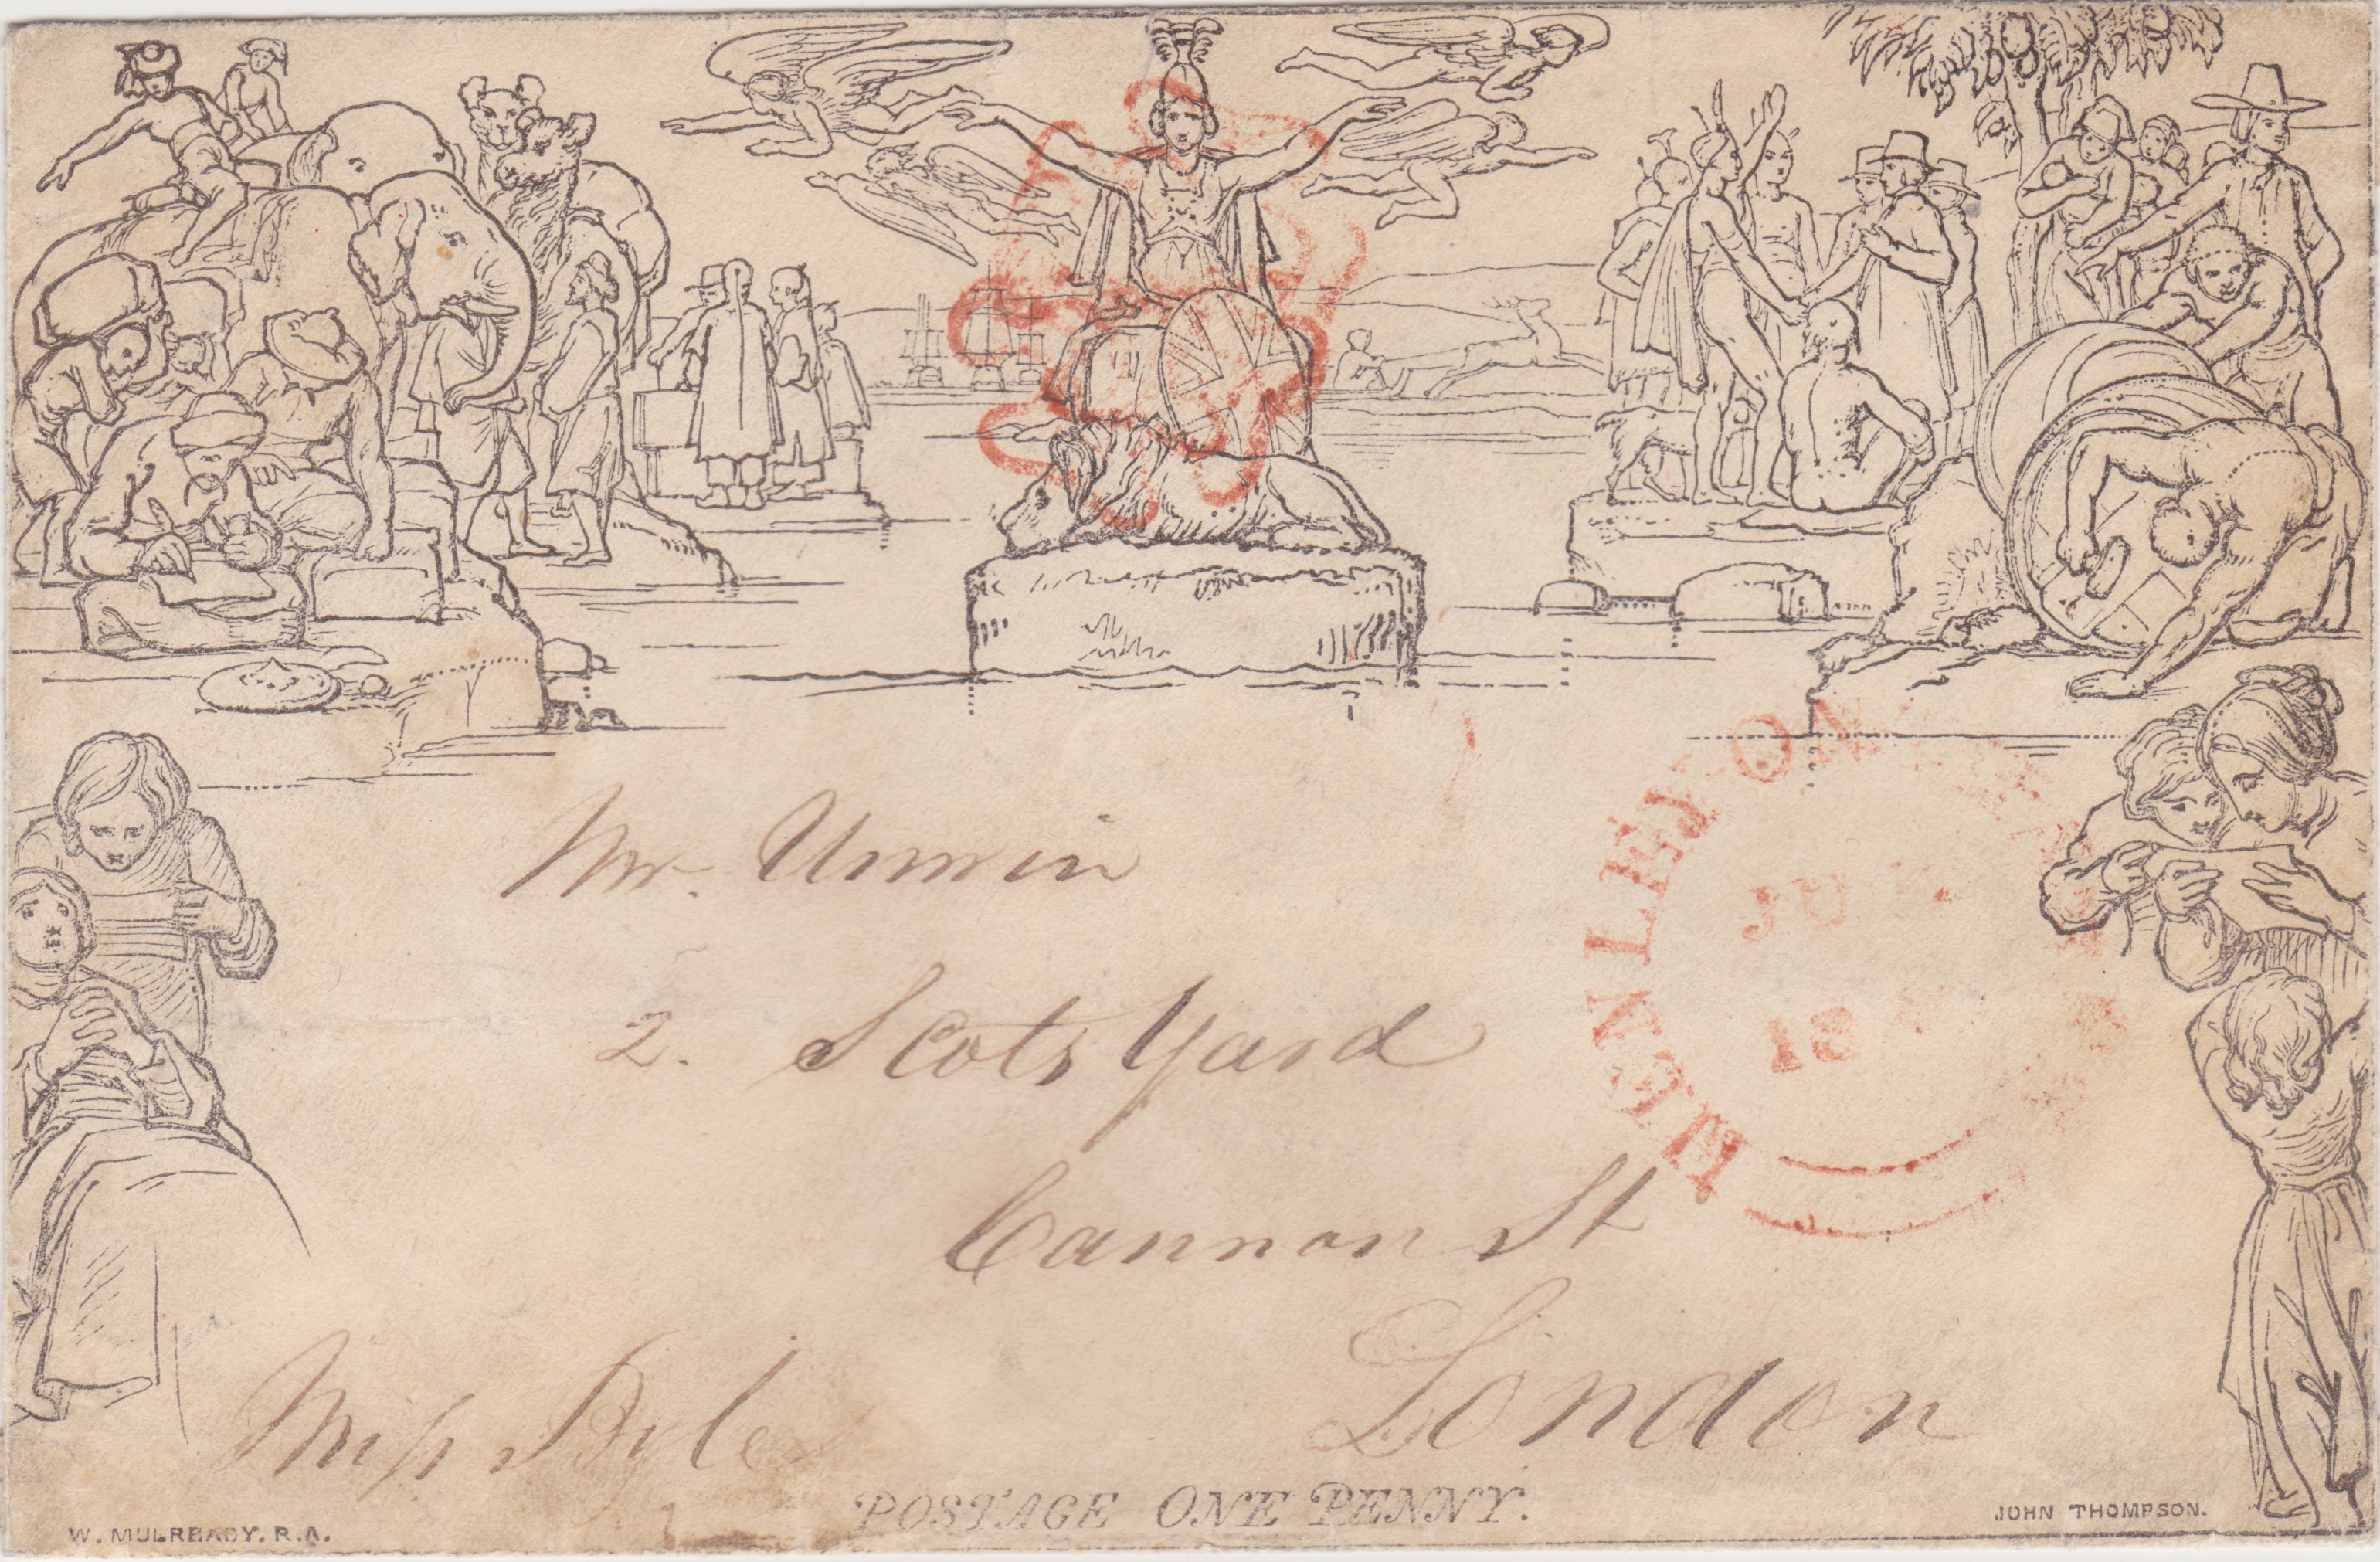 Mr. Unwin
2. Scots Yard
Cannon St
London
Miss Byles
POSTAGE ONE PENNY.
W. MULREADY. R.A.
JOHN THOMPSON.
HENLEY ON
JU
18